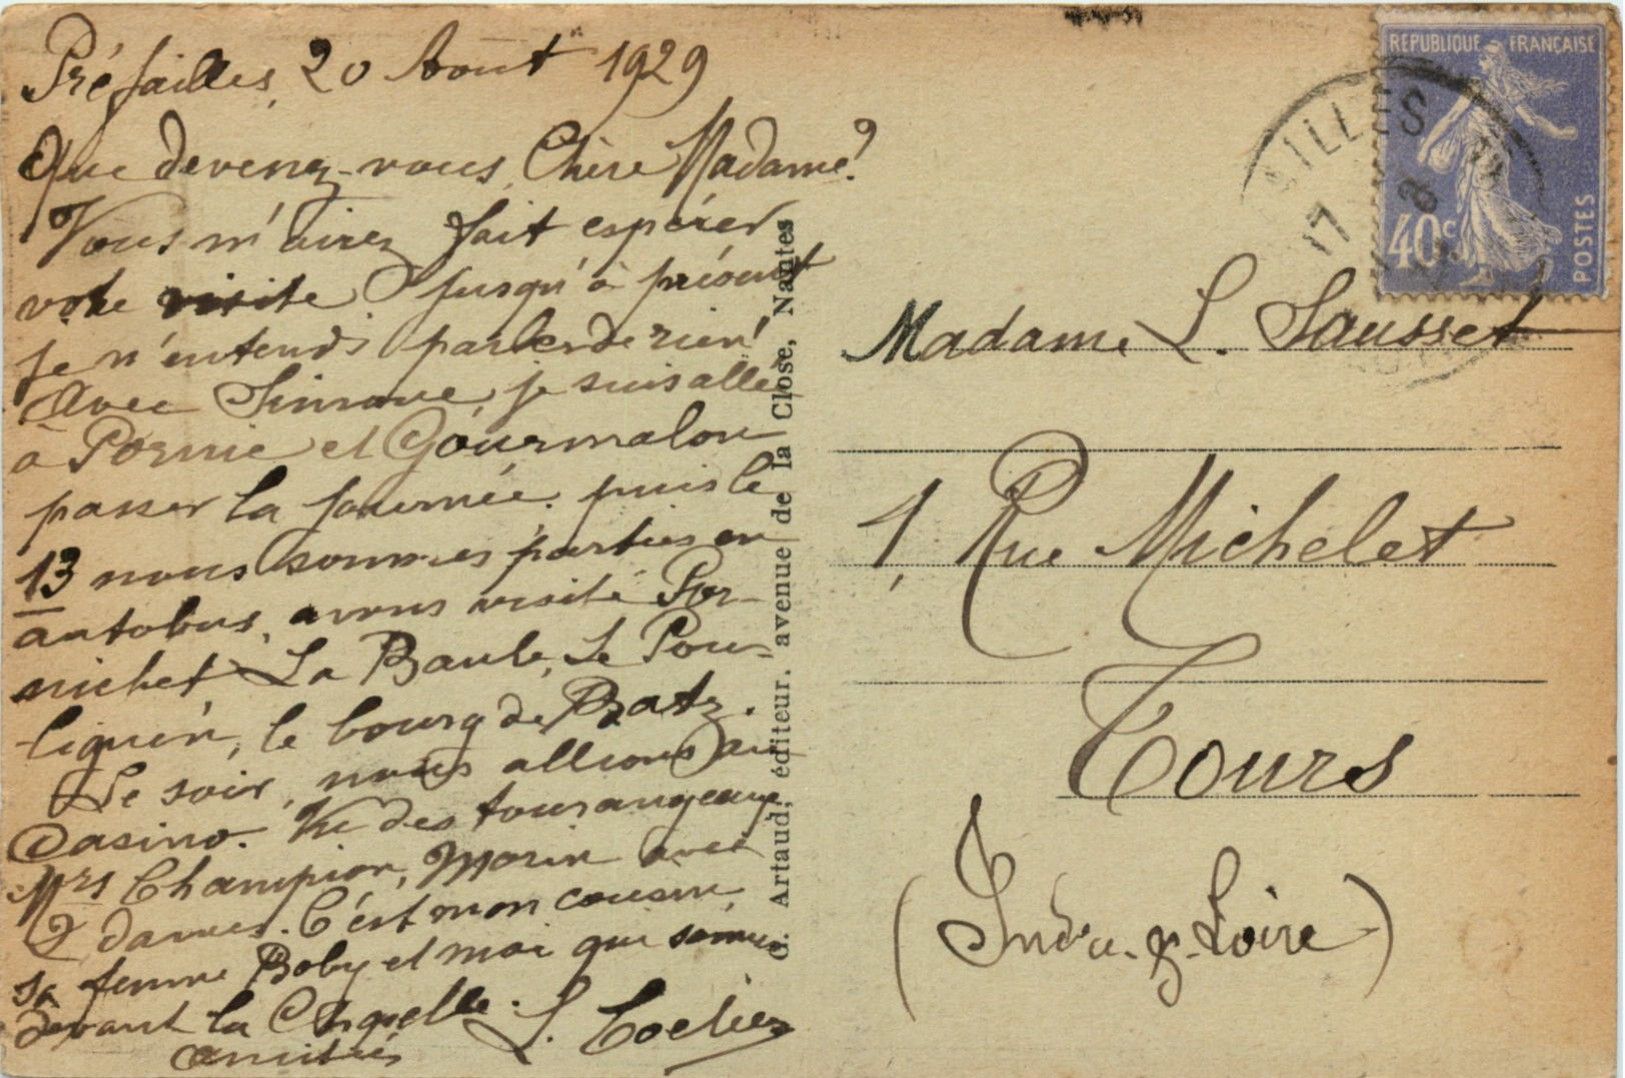 Préfailles, 20 Août 1929
Que devenez-vous, Chère Madame?
Vous m'aviez fait espérer
votre visite. Jusqu'à présent
je n'entends parler de rien!
Avec Simone, je suis allée
à Pornic et Gourmalon
passer la journée. puis le
13 nous sommes parties en
autobus, avons visité Por-
nichet La Baule, Le Pou-
liguen, le bourg de Batz.
Le soir, nous allions au
Casino. Vu des tourangeaux
Mrs Champion, Morin avec
2 dames. C'est mon cousin,
sa femme Boby et moi qui sommes
devant la Chapelle.
amitiés L.
G. Artaud, éditeur, avenue de la Close, Nantes
REPUBLIQUE FRANÇAISE
40c
POSTES
AILLES
17 8
Madame L. Sausset
1, Rue Michelet
Tours
(Indre-&-Loire)